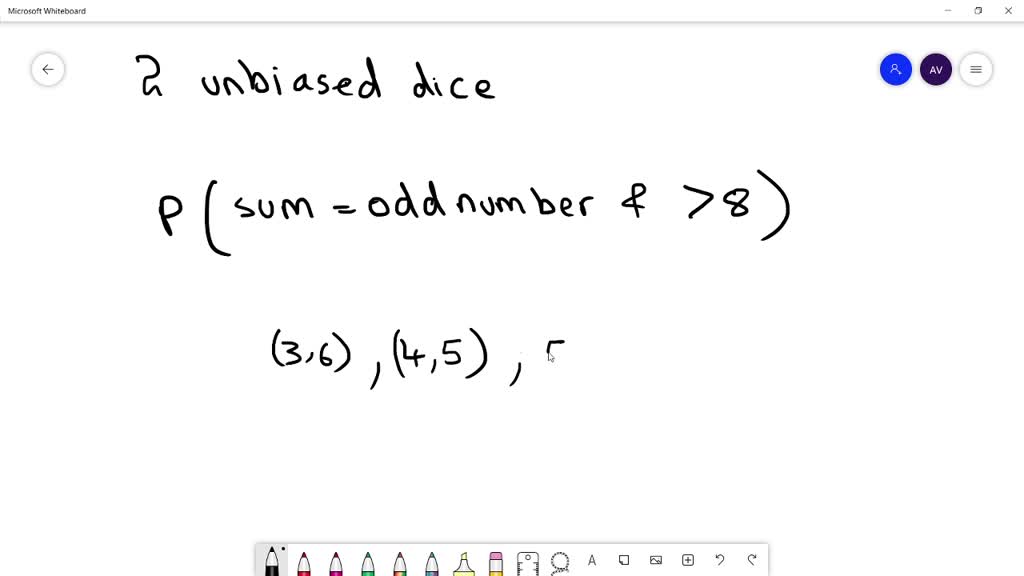 Microsoft Whiteboard
AV
2 unbiased dice
P ( sum = odd number & > 8 )
(3,6) , (4,5) , 5
A